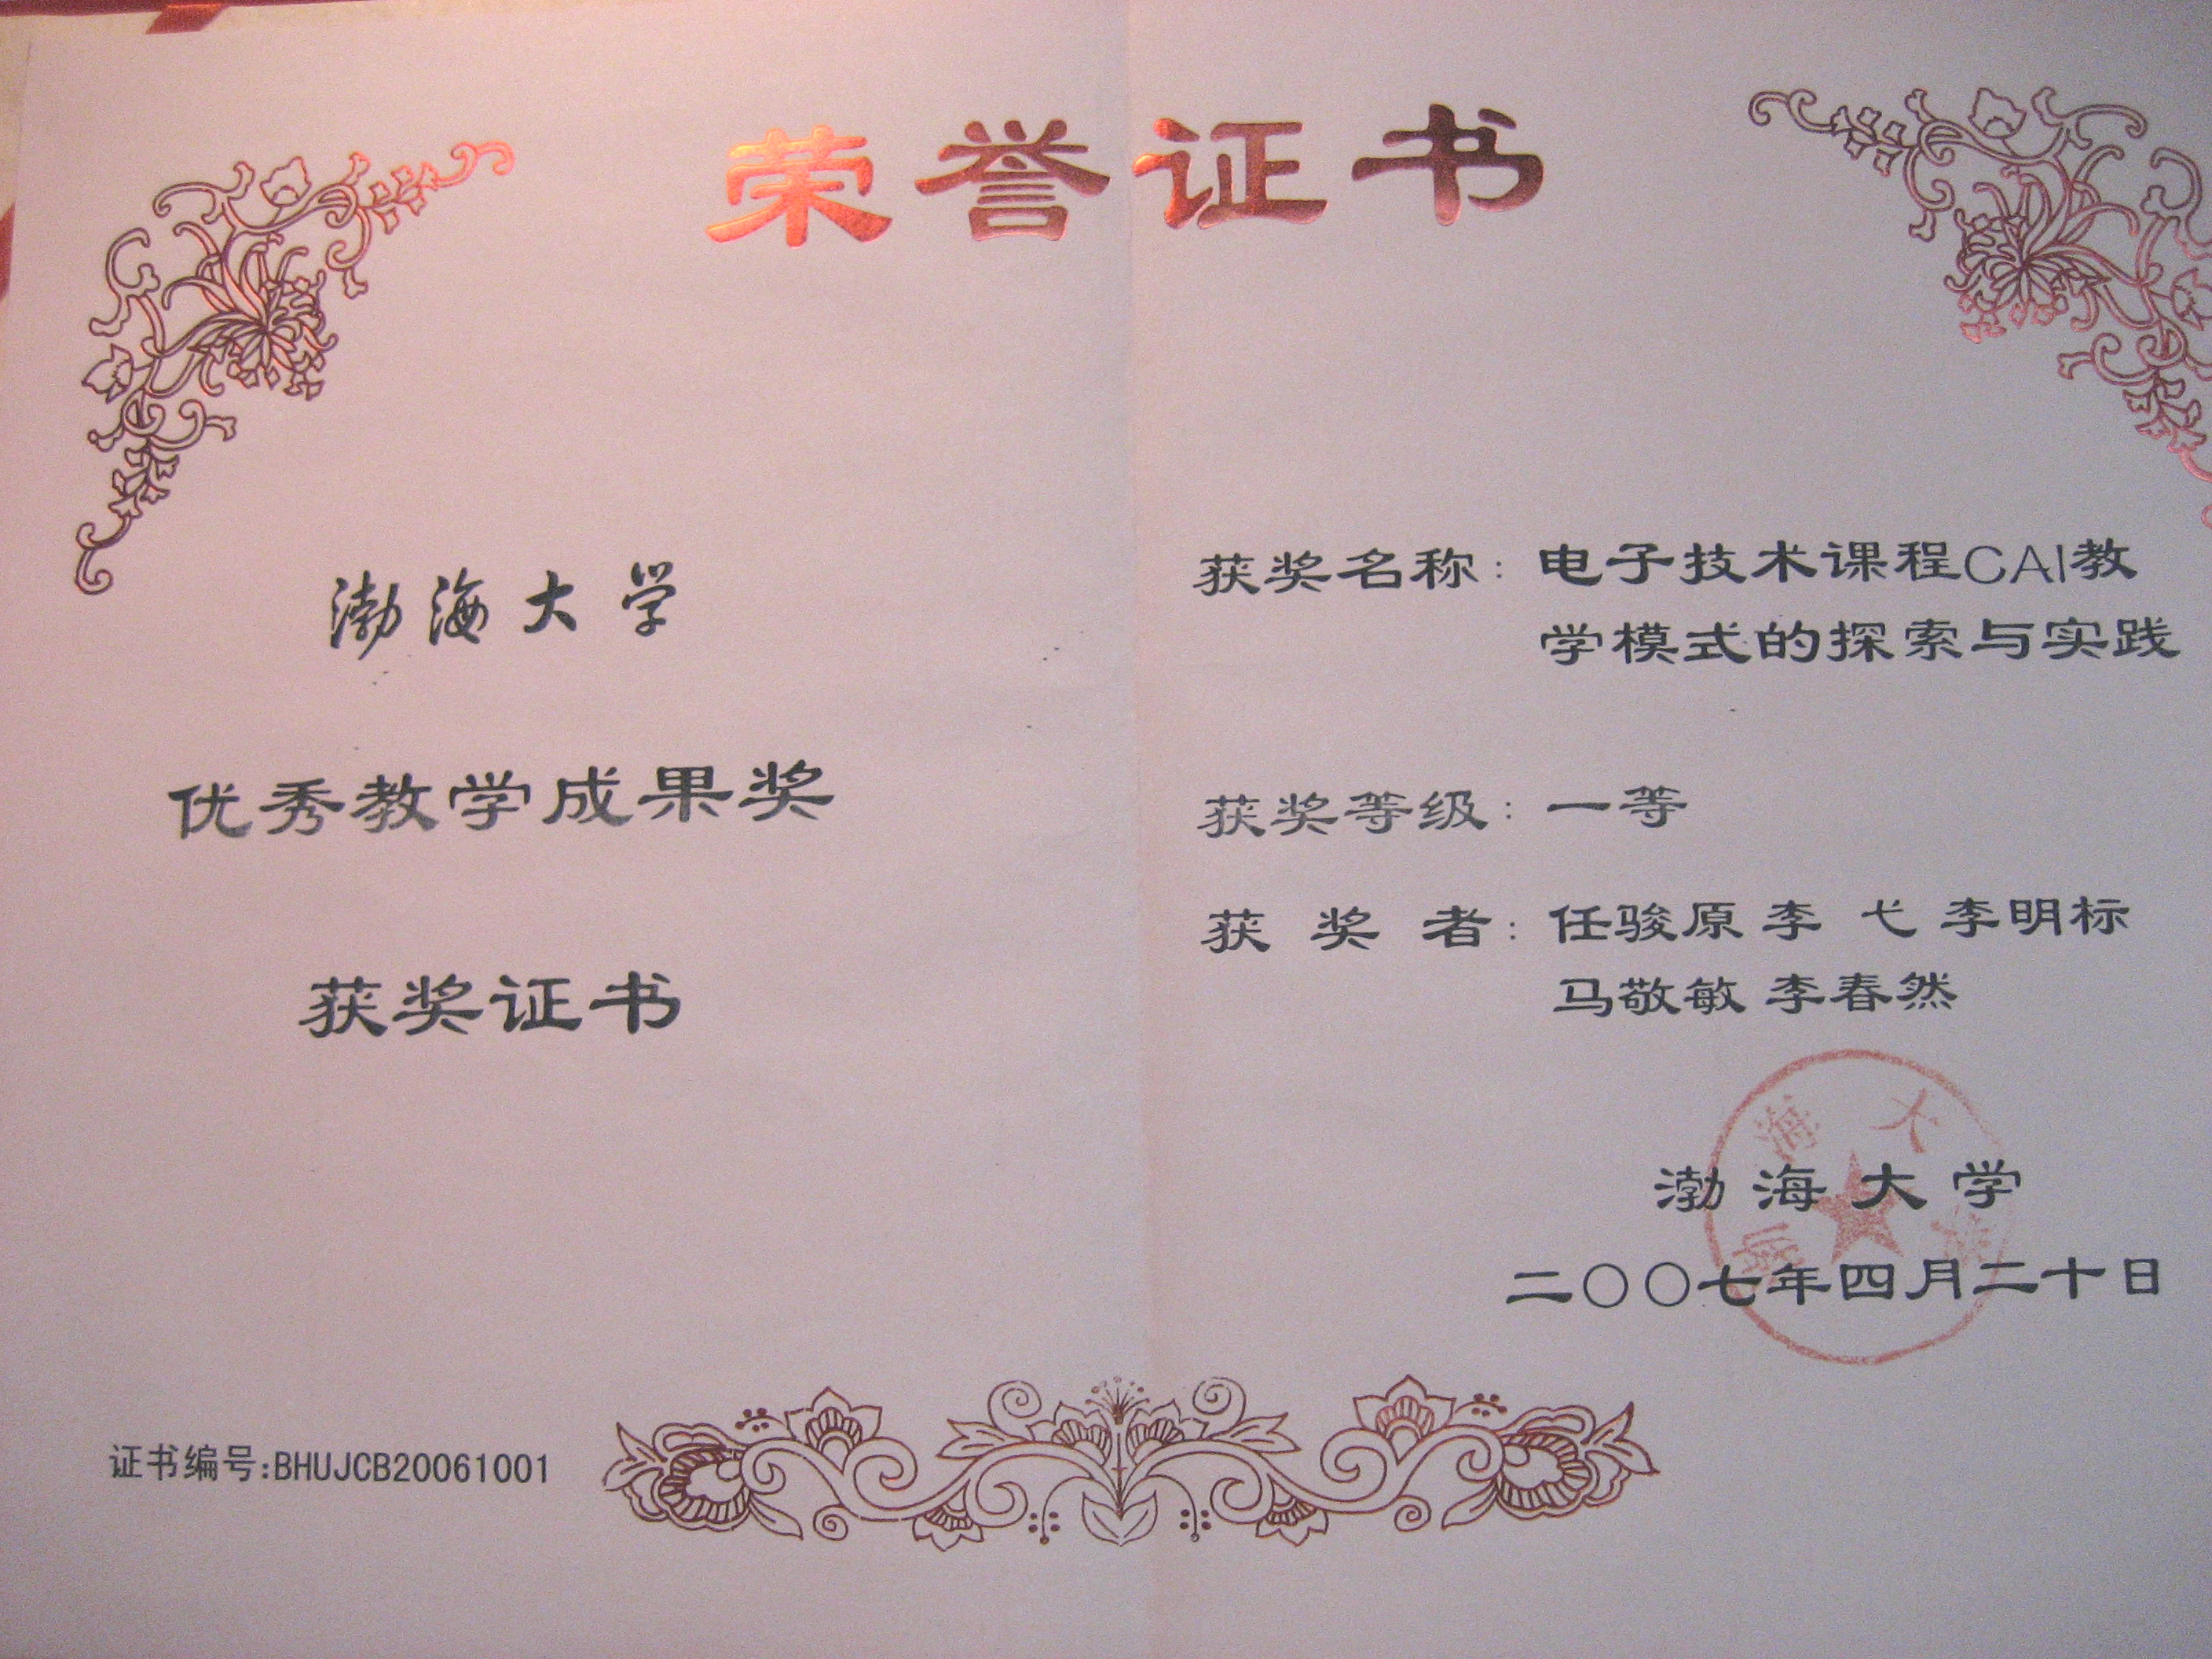 荣誉证书
渤海大学
优秀教学成果奖
获奖证书
证书编号:BHUJCB20061001
获奖名称：电子技术课程CAI教
学模式的探索与实践
获奖等级：一等
获 奖 者：任骏原 李 弋 李明标
马敬敏 李春然
渤海大学
二〇〇七年四月二十日
渤海大学